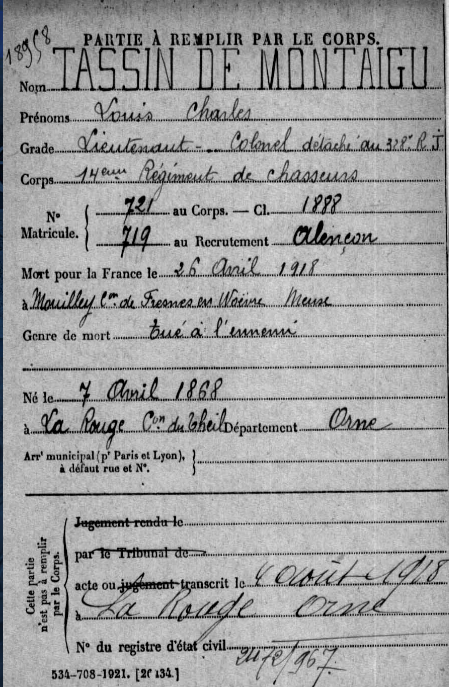 18958
PARTIE À REMPLIR PAR LE CORPS.
Nom TASSIN DE MONTAIGU
Prénoms Louis Charles
Grade Lieutenant - Colonel détaché au 328e R.I
Corps 14eme Régiment de chasseurs
N° Matricule. { 721 au Corps. — Cl. 1888
719 au Recrutement Alençon
Mort pour la France le 26 Avril 1918
à Mouilley Con de Fresnes en Woëvre Meuse
Genre de mort tué à l'ennemi
Né le 7 Avril 1868
à La Rouge Con du Theil Département Orne
Arrt municipal (pr Paris et Lyon), à défaut rue et N°. }
Cette partie n'est pas à remplir par le Corps.
Jugement rendu le
par le Tribunal de
acte ou jugement transcrit le 4 août 1918
à La Rouge Orne
N° du registre d'état civil
2472/967.
534-708-1921. [26434.]